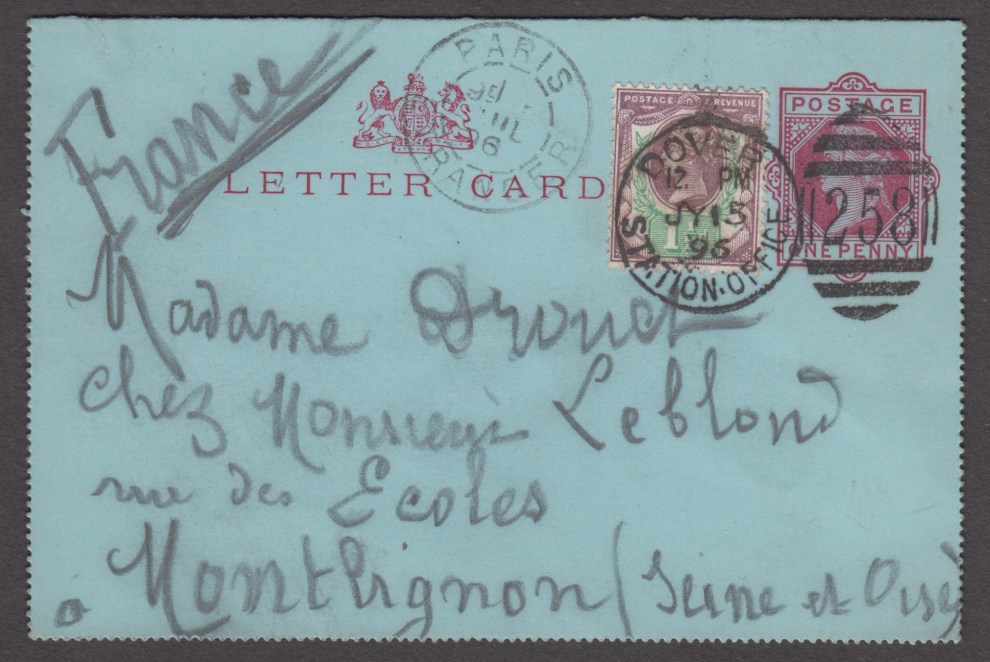 France
LETTER CARD
PARIS
JUIL
96
ETRANGER
POSTAGE REVENUE
1½d
DOVER
12. PM
JY 15
96
STATION.OFFICE
POSTAGE
ONE PENNY
258
Madame Drouet
chez Monsieur Leblond
rue des Ecoles
à Montlignon (Seine et Oise)